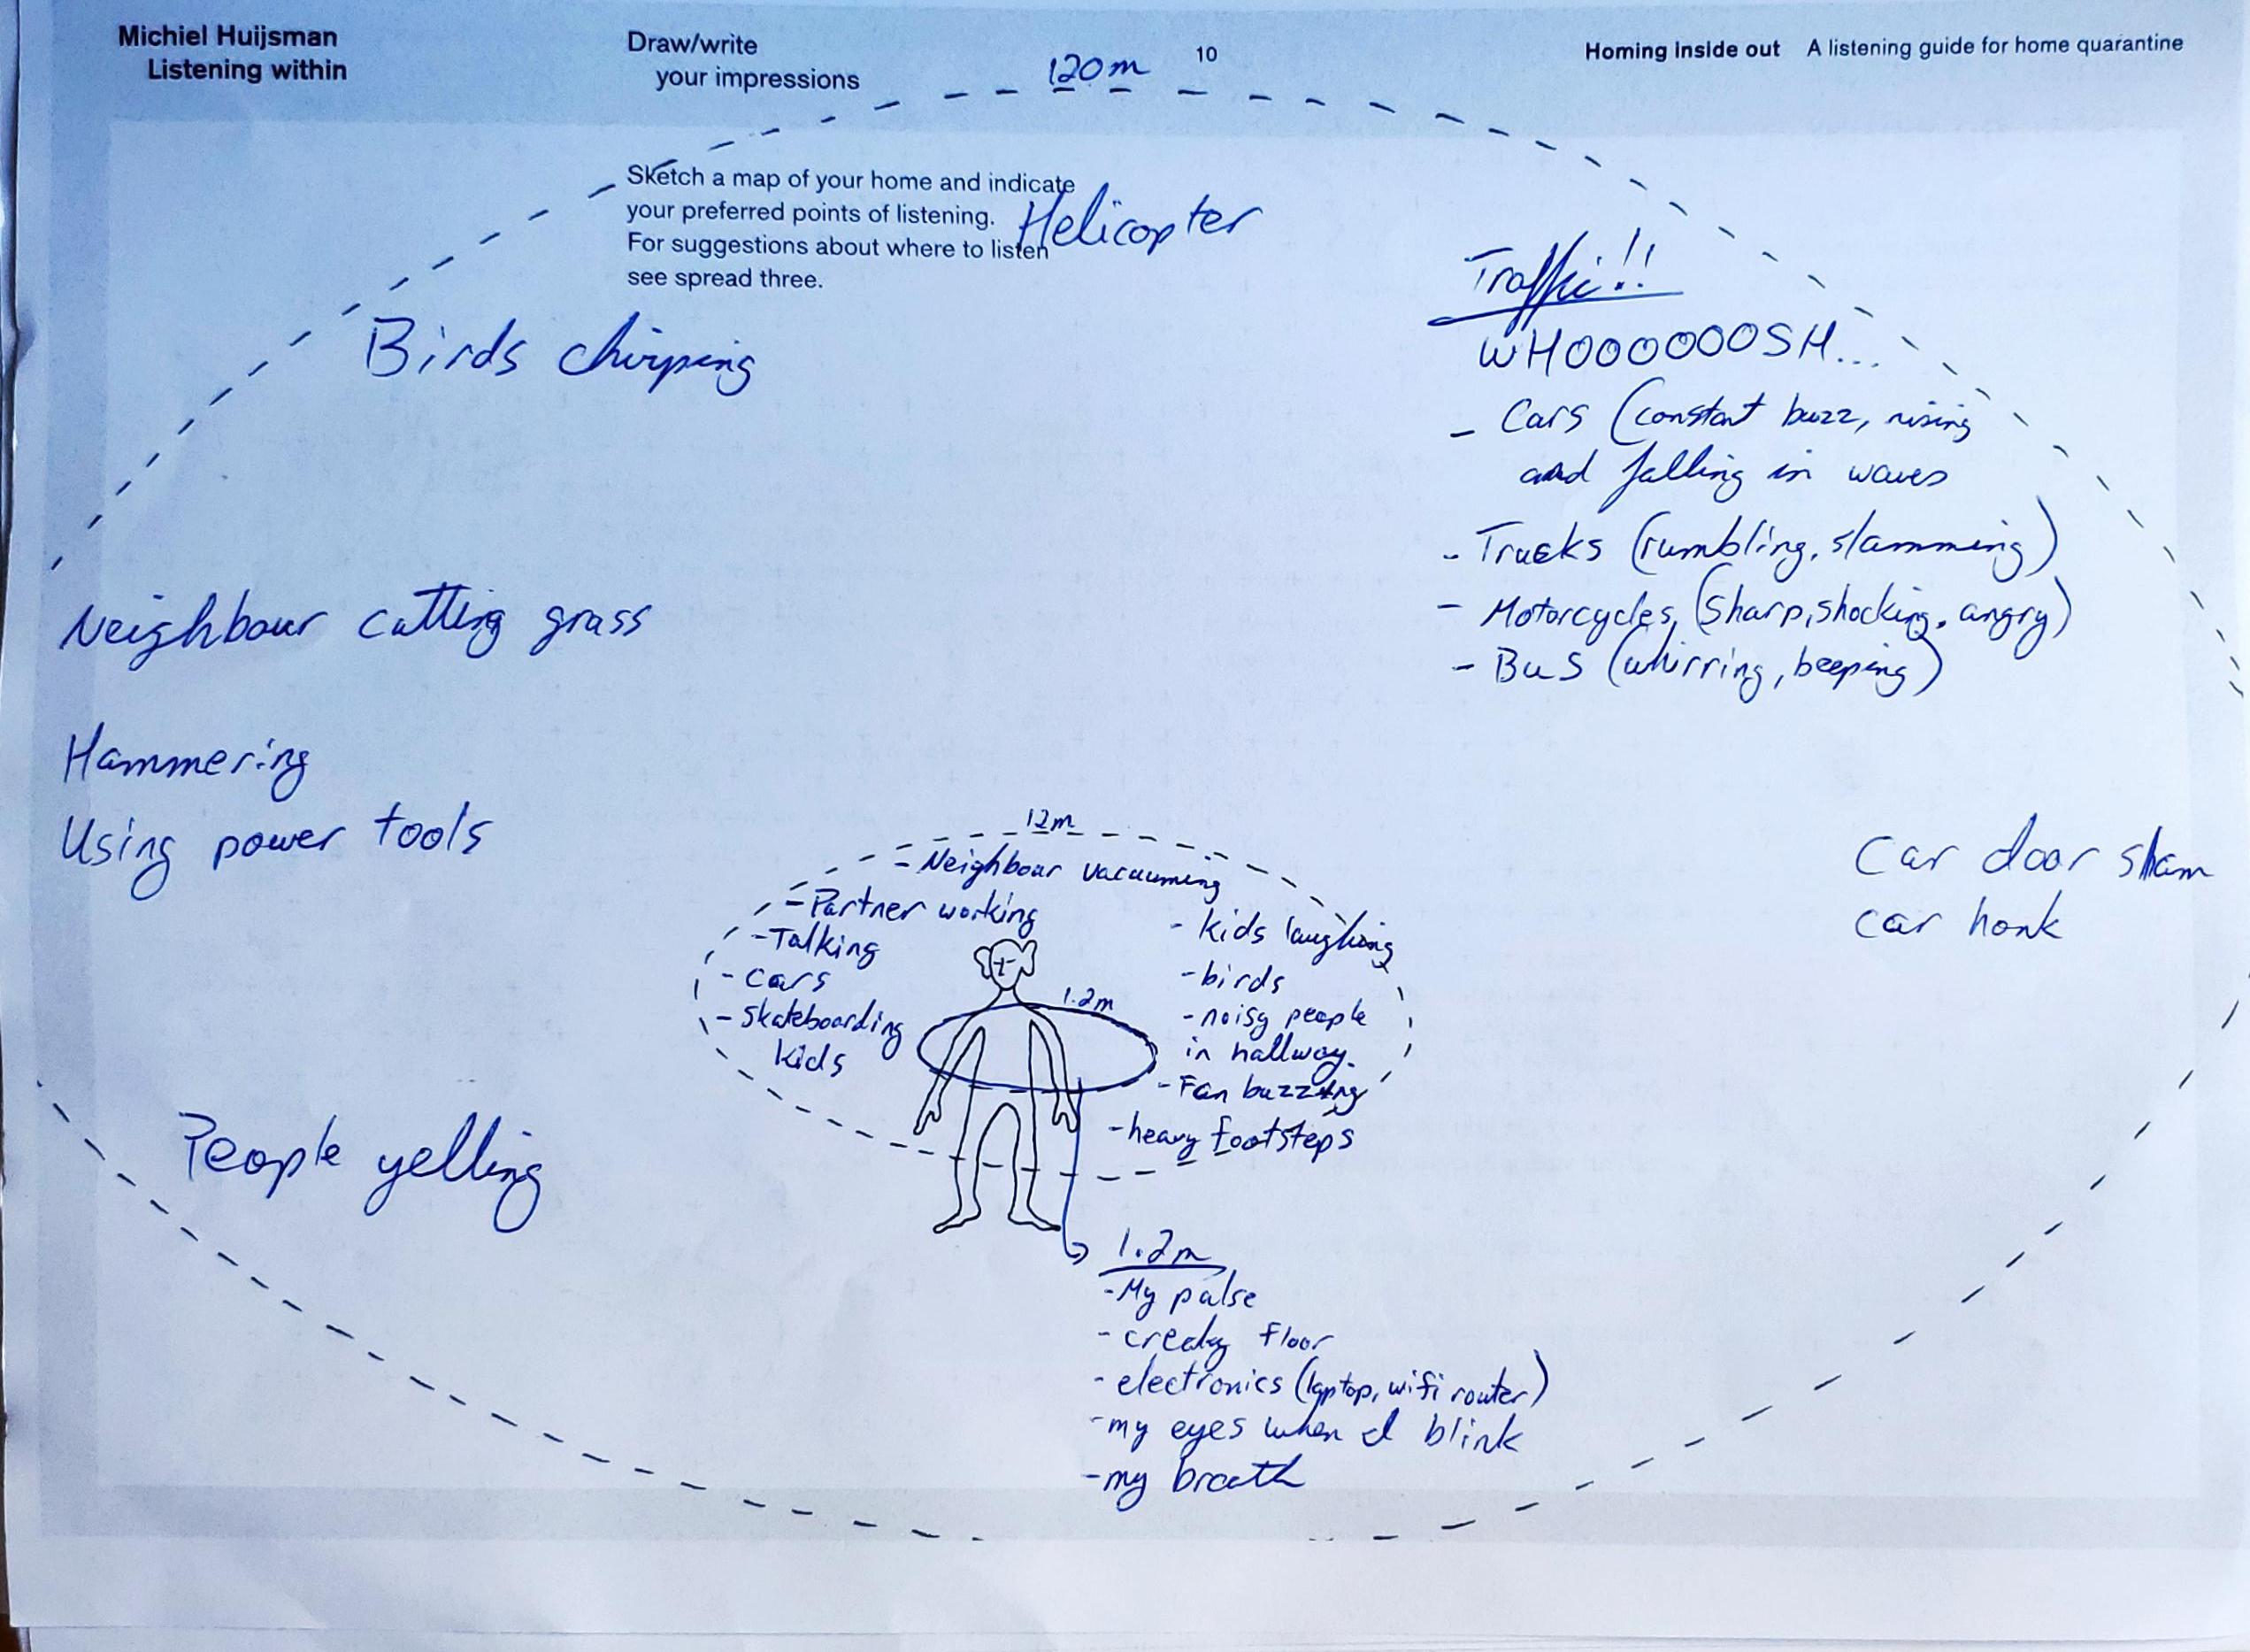 Michiel Huijsman
Listening within
Draw/write
your impressions
10
Homing inside out A listening guide for home quarantine
120m
Sketch a map of your home and indicate
your preferred points of listening.
For suggestions about where to listen
see spread three.
Helicopter
Birds chirping
Traffic!!
WHOOOOOOSH...
- Cars (constant buzz, rising
and falling in waves
- Trucks (rumbling, slamming)
- Motorcycles, (Sharp, shocking, angry)
- Bus (whirring, beeping)
Neighbour cutting grass
Hammering
Using power tools
People yelling
Car door slam
car honk
12m
- Neighbour vacuuming
- Partner working
- Talking
- cars
- skateboarding
kids
- kids laughing
- birds
- noisy people
in hallway.
- Fan buzzing
- heavy footsteps
1.2m
1.2m
- My pulse
- creaky floor
- electronics (laptop, wifi router)
- my eyes when I blink
- my breath